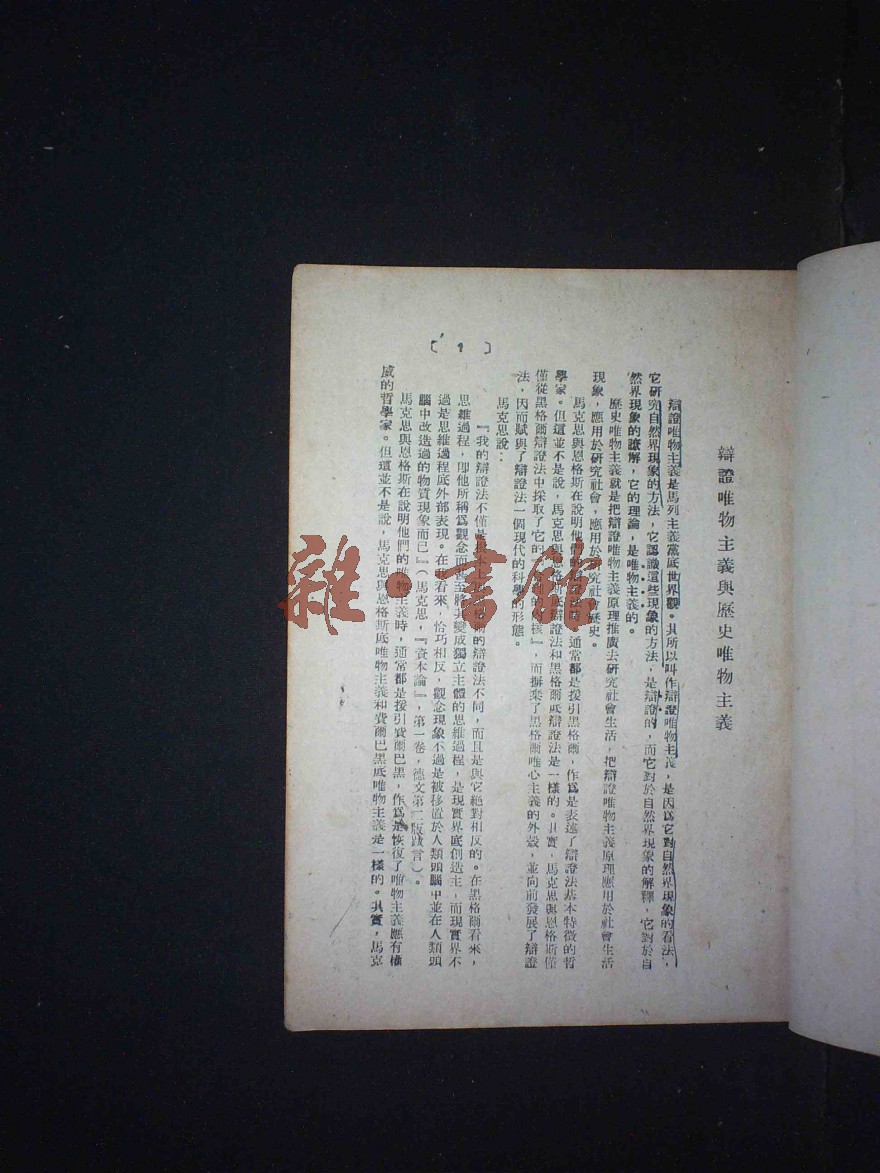 辯證唯物主義與歷史唯物主義
辯證唯物主義是馬列主義黨底世界觀。其所以叫作辯證唯物主義，是因爲它對自然界現象的看法，
它研究自然界現象的方法，它認識這些現象的方法，是辯證的，而它對於自然界現象的解釋，它對於自
然界現象的瞭解，它的理論，是唯物主義的。
歷史唯物主義就是把辯證唯物主義原理推廣去研究社會生活，把辯證唯物主義原理應用於社會生活
現象，應用於研究社會，應用於研究社會歷史。
馬克思與恩格斯在說明他們的 時，通常都是援引黑格爾，作爲是表述了辯證法基本特徵的哲
學家。但這並不是說，馬克思與恩格斯底辯證法和黑格爾底辯證法是一樣的。其實，馬克思與恩格斯僅
僅從黑格爾辯證法中採取了它的 』，而摒棄了黑格爾唯心主義的外殼，並向前發展了辯證
法，因而賦與了辯證法一個現代的科學的形態。
馬克思說：
『我的辯證法不僅是 的辯證法不同，而且是與它絕對相反的。在黑格爾看來，
思維過程，即他所稱爲觀念而甚至將其變成獨立主體的思維過程，是現實界底創造主，而現實界不
過是思維過程底外部表現。在我看來，恰巧相反，觀念現象不過是被移置於人類頭腦中並在人類頭
腦中改造過的物質現象而已』（馬克思，『資本論』，第一卷，德文第二版跋言）。
馬克思與恩格斯在說明他們的唯物主義時，通常都是援引費爾巴黑，作爲是恢復了唯物主義應有權
威的哲學家。但這並不是說，馬克思與恩格斯底唯物主義和費爾巴黑底唯物主義是一樣的。其實，馬克
〔1〕
雜·書館